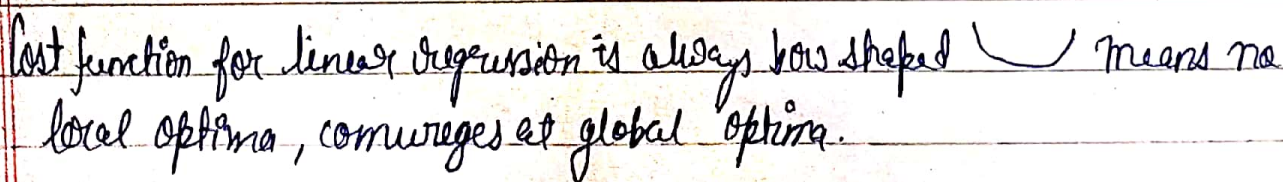 Cost function for linear regression is always bow shaped means no
local optima, converges at global optima.